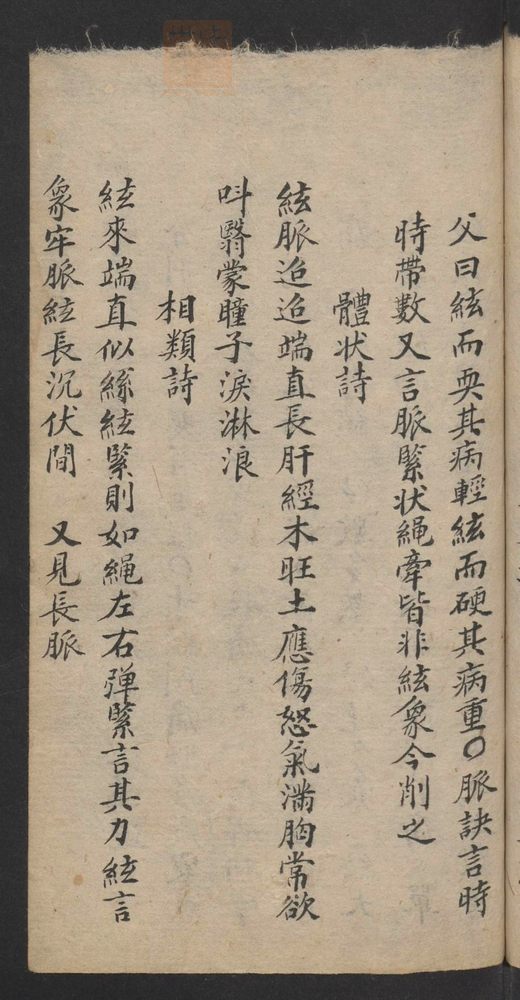 父曰絃而耎其病輕絃而硬其病重〇脈訣言時
時帶數又言脈緊状繩牽皆非絃象今削之
體状詩
絃脈迢迢端直長肝經木旺土應傷怒氣满胸常欲
呌翳蒙瞳子淚淋浪
相類詩
絃來端直似絲絃緊則如繩左右弹緊言其力絃言
象牢脈絃長沉伏間　又見長脈